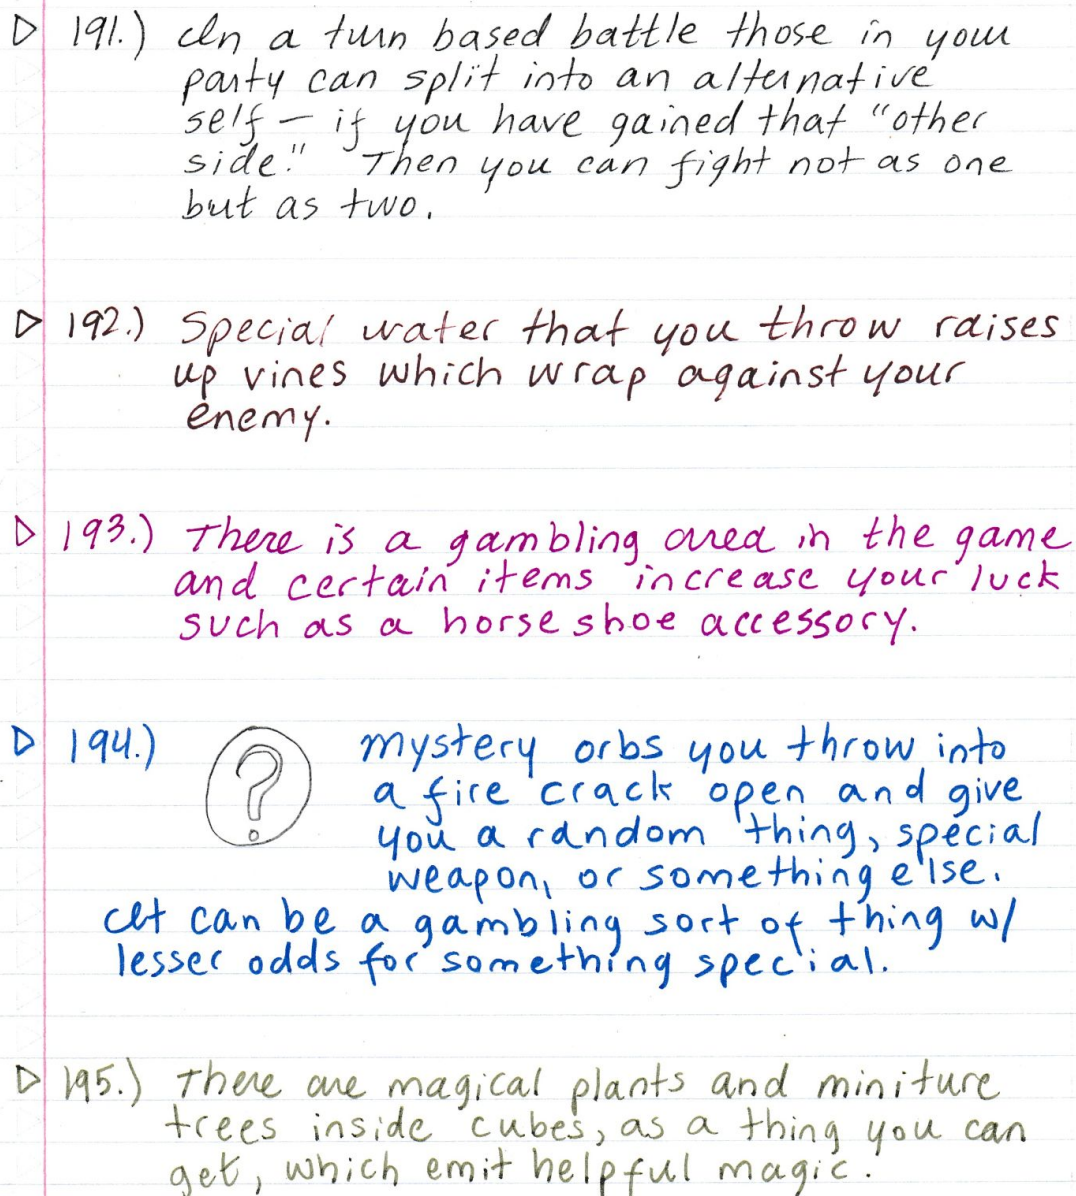 191.) In a turn based battle those in your
party can split into an alternative
self – if you have gained that "other
side." Then you can fight not as one
but as two.
192.) Special water that you throw raises
up vines which wrap against your
enemy.
193.) There is a gambling area in the game
and certain items increase your luck
such as a horse shoe accessory.
194.) ? mystery orbs you throw into
a fire crack open and give
you a random thing, special
weapon, or something else.
It can be a gambling sort of thing w/
lesser odds for something special.
195.) There are magical plants and miniture
trees inside cubes, as a thing you can
get, which emit helpful magic.